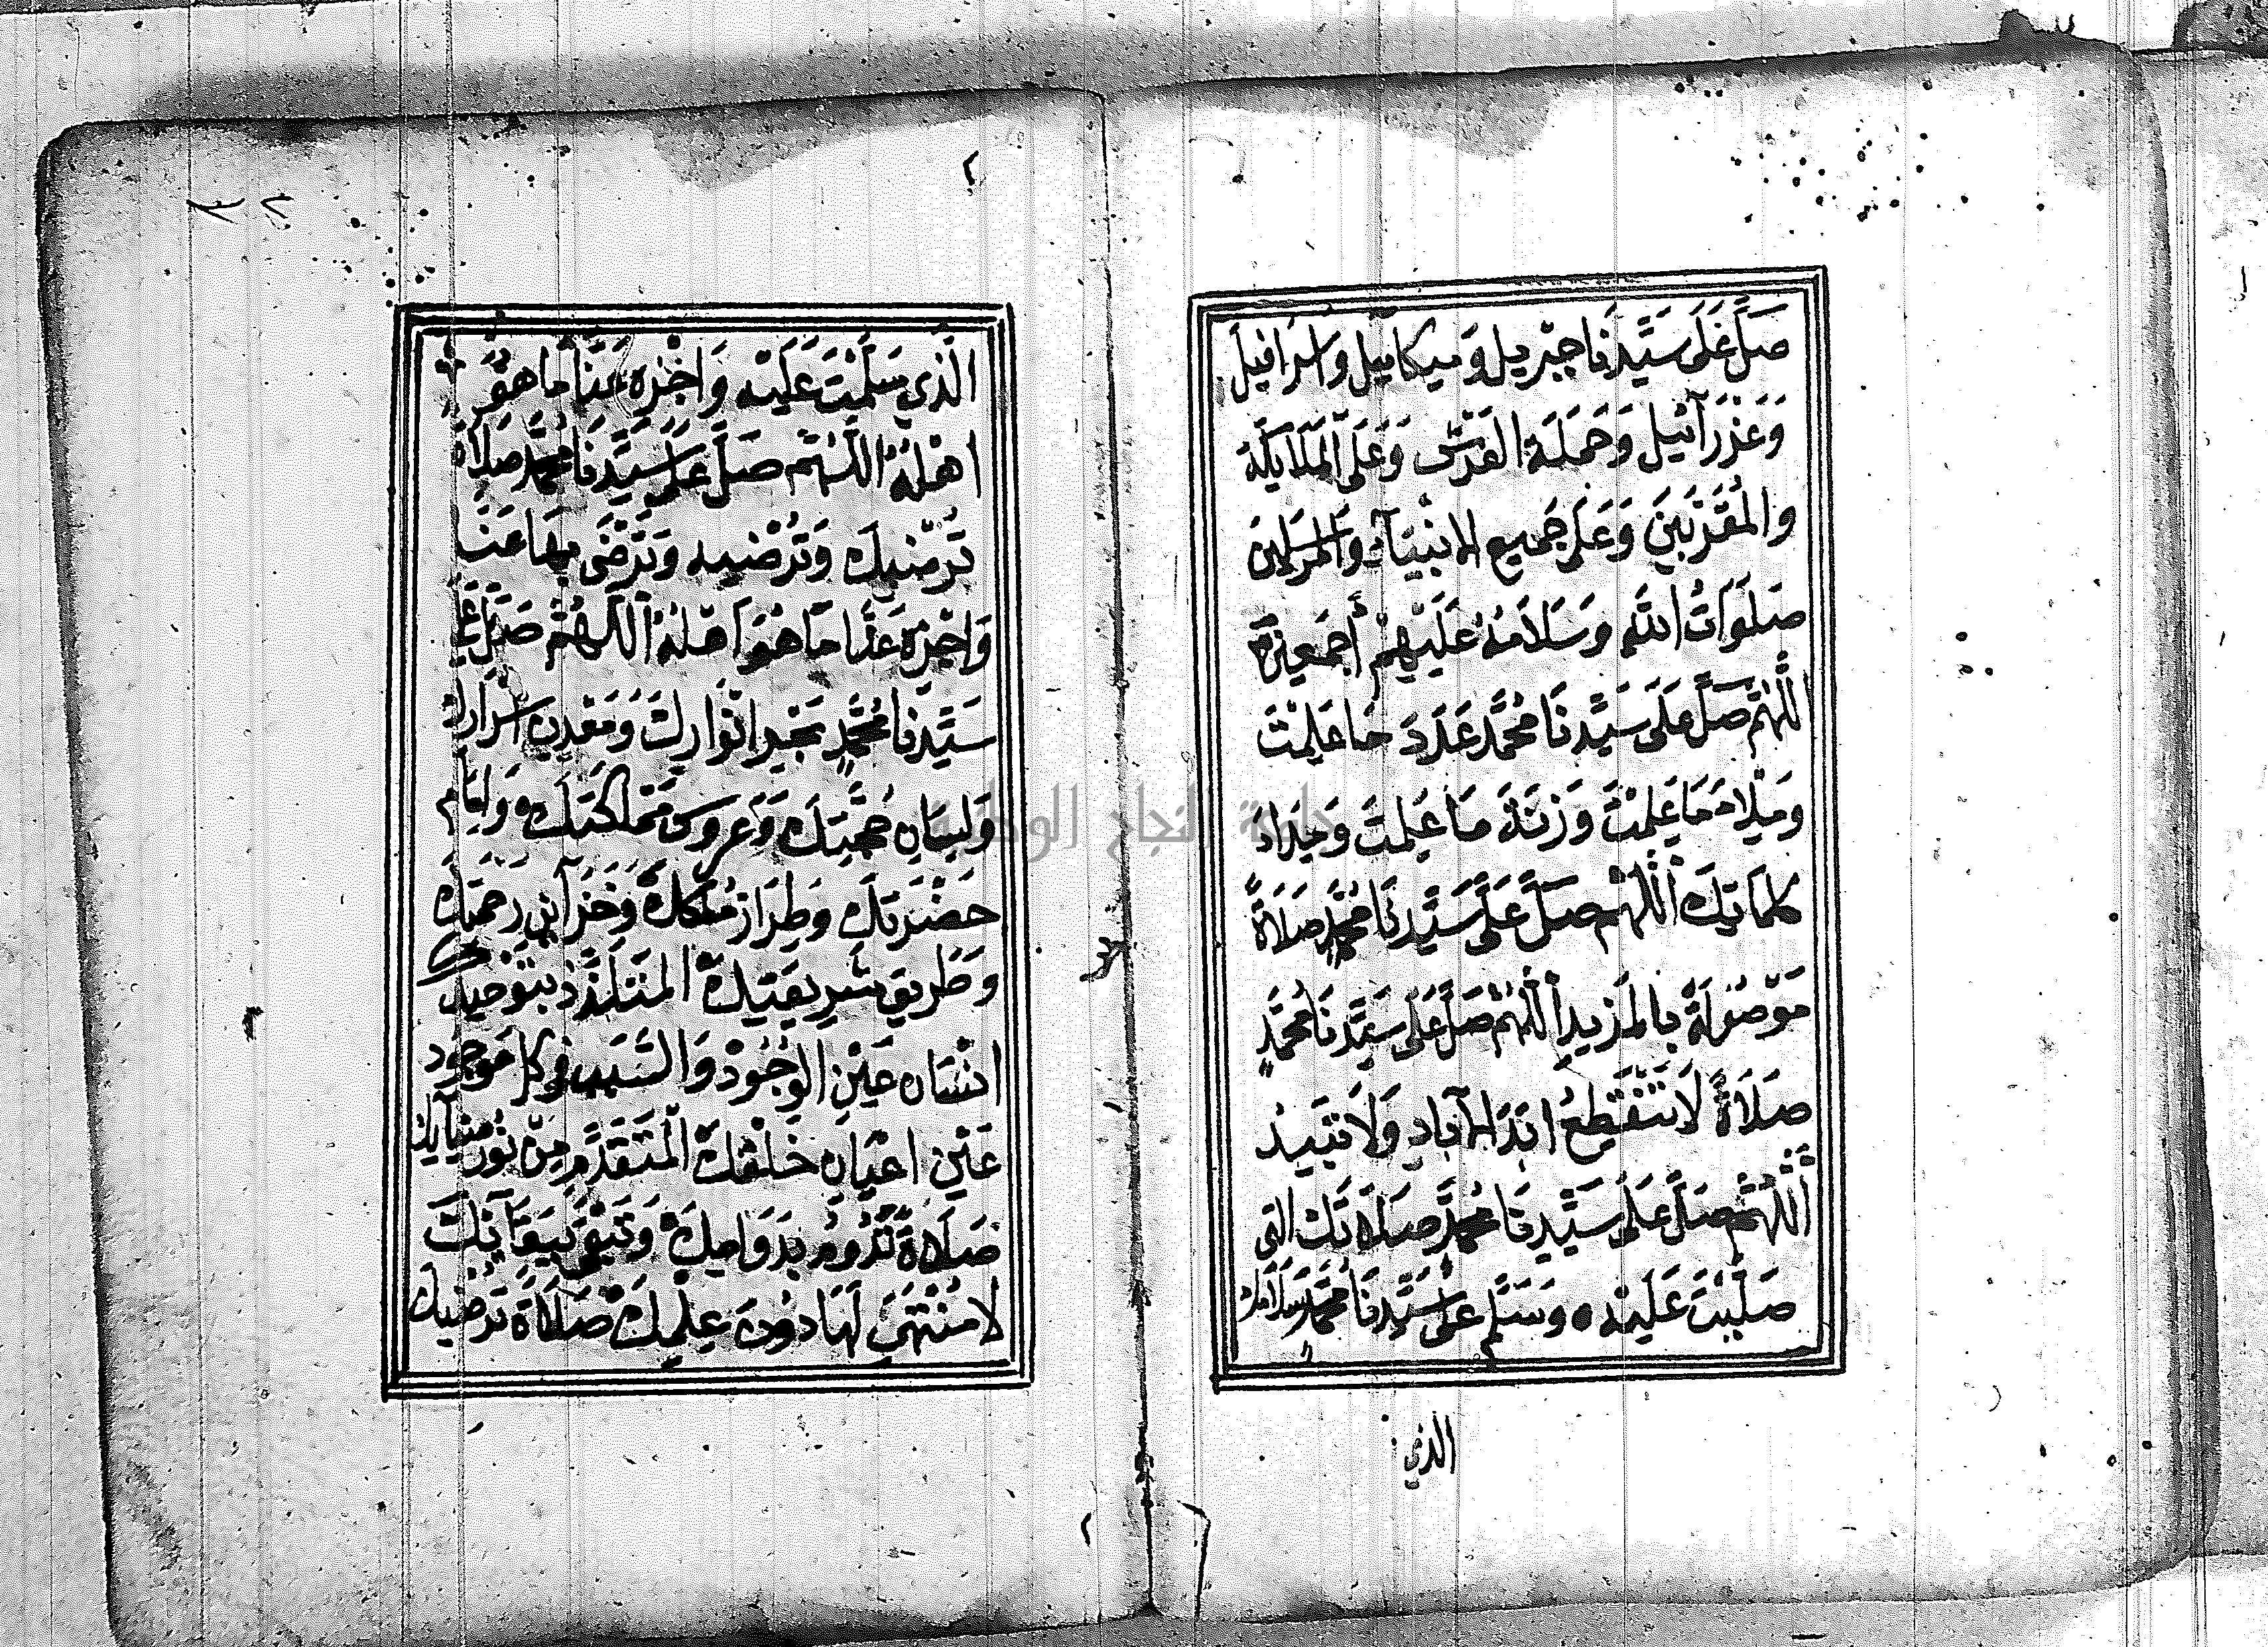 صَلِّ عَلَى سَيِّدِنَا جِبْرِيل وَمِيكَائِيل وَاِسْرَافِيلَ
وَعَزْرَآئِيل وَحَمَلَةِ العَرْشِ وَعَلَى اَلْمَلَايِكَة
والمُقَرَّبِينَ وَعَلَى جَمِيعِ الانْبِيَآءِ وَالْمُرْسَلِينَ
صَلَوَاتُ اللَّهِ وَسَلَامُهُ عَلَيْهِمْ أَجْمَعِينَ
اللَّهُمَّ صَلِّ عَلَى سَيِّدِنَا مُحَمَّدٍ عَدَدَ مَا عَلِمْتَ
وَمِلْاءَ مَا عَلِمْتَ وَزِنَةَ مَا عَلِمْتَ وَمِدَادَ
كلمَاتِكَ اَللَّهُمَّ صَلِّ عَلَى سَيِّدِنَا مُحَمَّدٍ صَلَاةً
مَوْصُولَةً بِالمَزِيدِ اَللَّهُمَّ صَلِّ عَلَى سَيِّدِنَا مُحَمَّدٍ
صَلَاةً لَا تَنْقَطِعُ اَبَدَ الآبَادِ وَلَا تَبِيدُ
اَللَّهُمَّ صَلِّ عَلَى سَيِّدِنَا مُحَمَّدٍ صَلَاتَك التِي
صَلَّيْتَ عَلَيْهِ وَسَلِّم عَلَى سَيِّدِنَا مُحَمَّدٍ سَلَامَك
الذي
الَّذِي سَلَّمْتَ عَلَيْهِ وَاَجْزِهِ عَنَّا مَا هُوَ
اَهْلُهُ اَللَّهُمَّ صَلِّ عَلَى سَيِّدِنَا مُحَمَّدٍ صَلَاةً
تُرْضِيكَ وَتُرْضِيهِ وَتَرْضَى بِهَا عَنَّا
وَاَجْزِهِ عَنَّا مَا هُوَ اَهْلُهُ اَللَّهُمَّ صَلِّ عَلَى
سَيِّدِنَا مُحَمَّدٍ بَحْرِ اَنْوَارِكَ وَمَعْدِنِ اَسْرَارِكَ
وَلِسَانِ حُجَّتِكَ وَعَرُوسِ مَمْلَكَتِكَ وَاِمَامِ
حَضْرَتِكَ وَطِرَازِ مُلْكِكَ وَخَزَآئِنِ رَحْمَتِكَ
وَطَرِيقِ شَرِيعَتِكَ الْمُتَلَذِّذِ بِتَوْحِيدِكَ
اِنْسَانِ عَيْنِ الوُجُودِ وَالسَّبَبِ فِي كل مَوْجُود
عَيْنِ اَعْيَانِ خَلْقِكَ اَلْمُتَقَدِّمِ مِنْ نُورِ ضِيَآئِكَ
صَلَاةً تَدُومُ بِدَوَامِكَ وَتَبْقَى بِبَقَآئِكَ
لا مُنْتَهَى لَهَا دُونَ عِلْمِكَ صَلَاةً تُرْضِيكَ
جامعة النجاح الوطنية